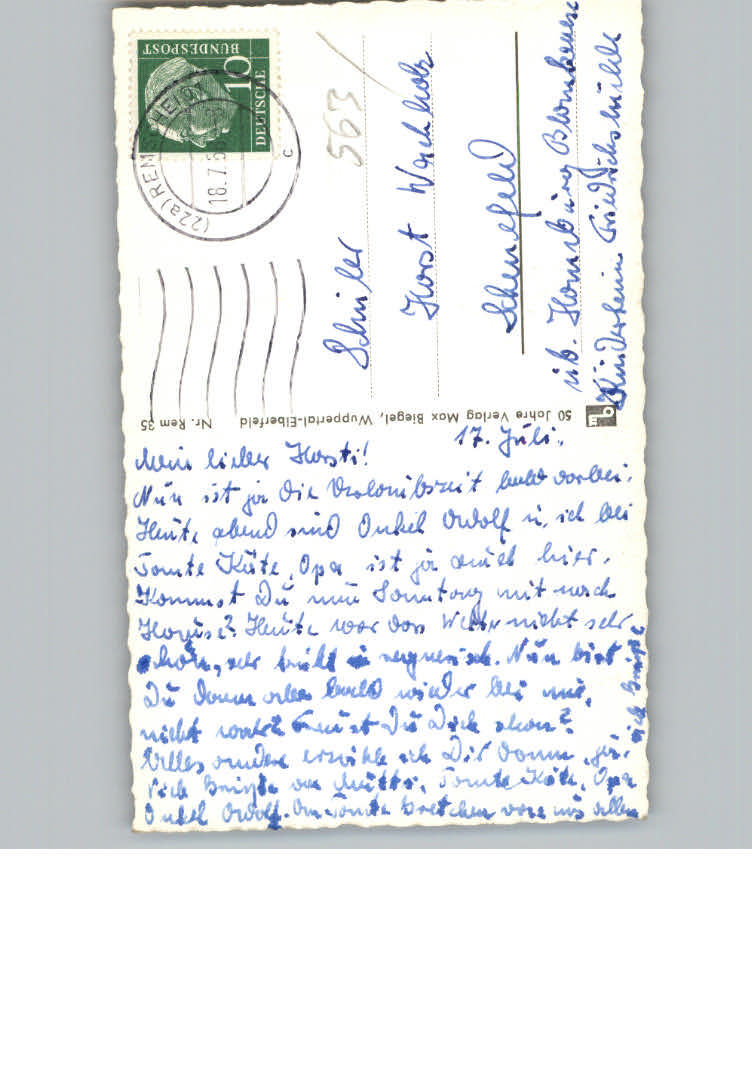 17. Juli.
Mein lieber Horsti!
Nun ist ja die Urlaubszeit bald vorbei.
Heute abend sind Onkel Adolf u. ich bei
Tante Käte, Opa ist ja auch hier.
Kommst Du nun Sonntag mit nach
Hause? Heute war das Wetter nicht sehr
schön, sehr kühl regnerisch. Nun bist
Du dann aber bald wieder bei uns,
nicht wahr? Freust Du Dich schon?
Alles andere erzähle ich Dir dann,
Grüße von Mutti, Tante Käte, Opa
Onkel Adolf. An Tante Gretchen von uns allen
Grüße
Schüler
Horst
Schenefeld
üb. Hamburg Blankenese
Kinderheim Friedrichshulde
563
DEUTSCHE
BUNDESPOST
10
(22a) REMSCHEID
18.7.5
c
50 Jahre Verlag Max Biegel, Wuppertal-Elberfeld
Nr. Rem 35
mb